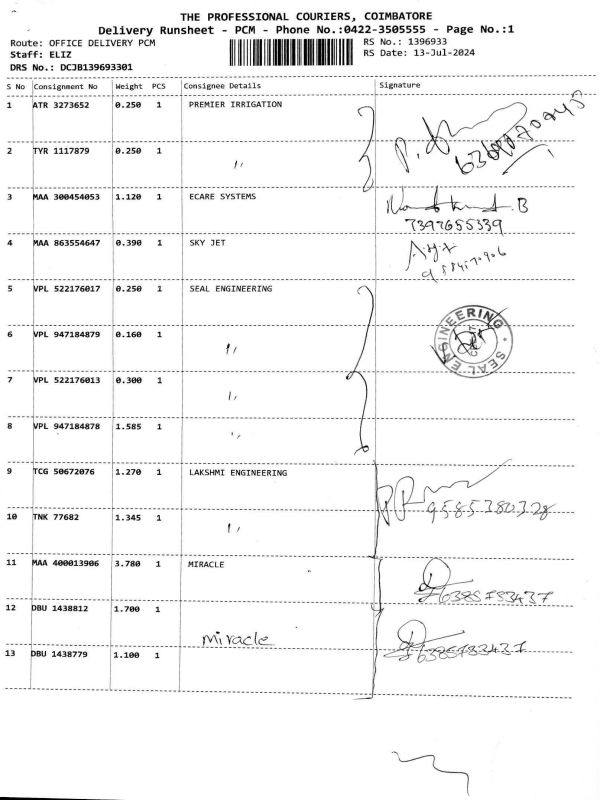 THE PROFESSIONAL COURIERS, COIMBATORE
Delivery Runsheet - PCM - Phone No.:0422-3505555 - Page No.:1
Route: OFFICE DELIVERY PCM
RS No.: 1396933
Staff: ELIZ
RS Date: 13-Jul-2024
DRS No.: DCJB139693301
S No Consignment No Weight PCS Consignee Details Signature
1 ATR 3273652 0.250 1 PREMIER IRRIGATION
2 TYR 1117879 0.250 1 "
3 MAA 300454053 1.120 1 ECARE SYSTEMS
7397655339
4 MAA 863554647 0.390 1 SKY JET
5 VPL 522176017 0.250 1 SEAL ENGINEERING
SEAL ENGINEERING
6 VPL 947184879 0.160 1 "
7 VPL 522176013 0.300 1 "
8 VPL 947184878 1.585 1 "
9 TCG 50672076 1.270 1 LAKSHMI ENGINEERING
9585380328
10 TNK 77682 1.345 1 "
11 MAA 400013906 3.780 1 MIRACLE
12 DBU 1438812 1.700 1
miracle
13 DBU 1438779 1.100 1